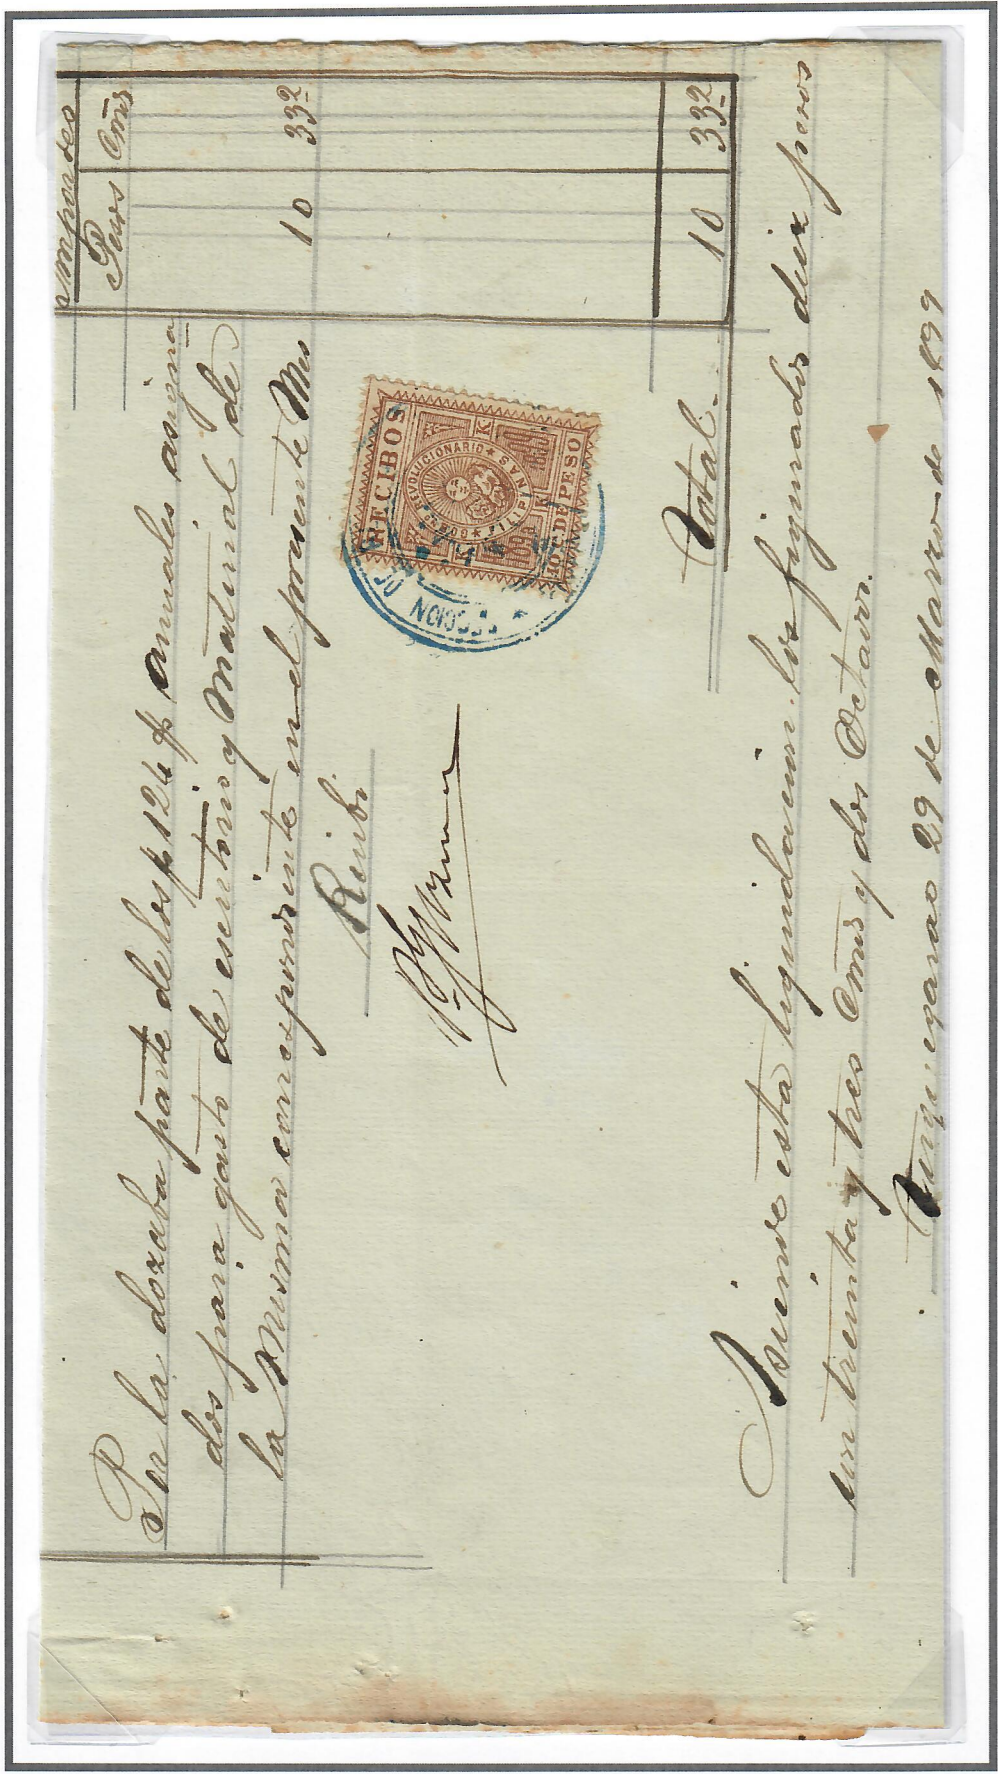 Importes
Pesos Cmos
Por la dozaba parte de los ps 124 ps anuales asigna
dos para gasto de escritorio y Material de
la Misma correspondiente en el presente Mes 10 33 2
Recibi
RECIBOS
GOBNO REVOLUCIONARIO
FILIPINAS
K K
1898 1899
10 CS DE PESO
SECCION DE
Total 10 33 2
Asciende esta liquidacion los figurados diez pesos
con treinta y tres Cmos y dos Octavos.
29 de Marzo de 1899